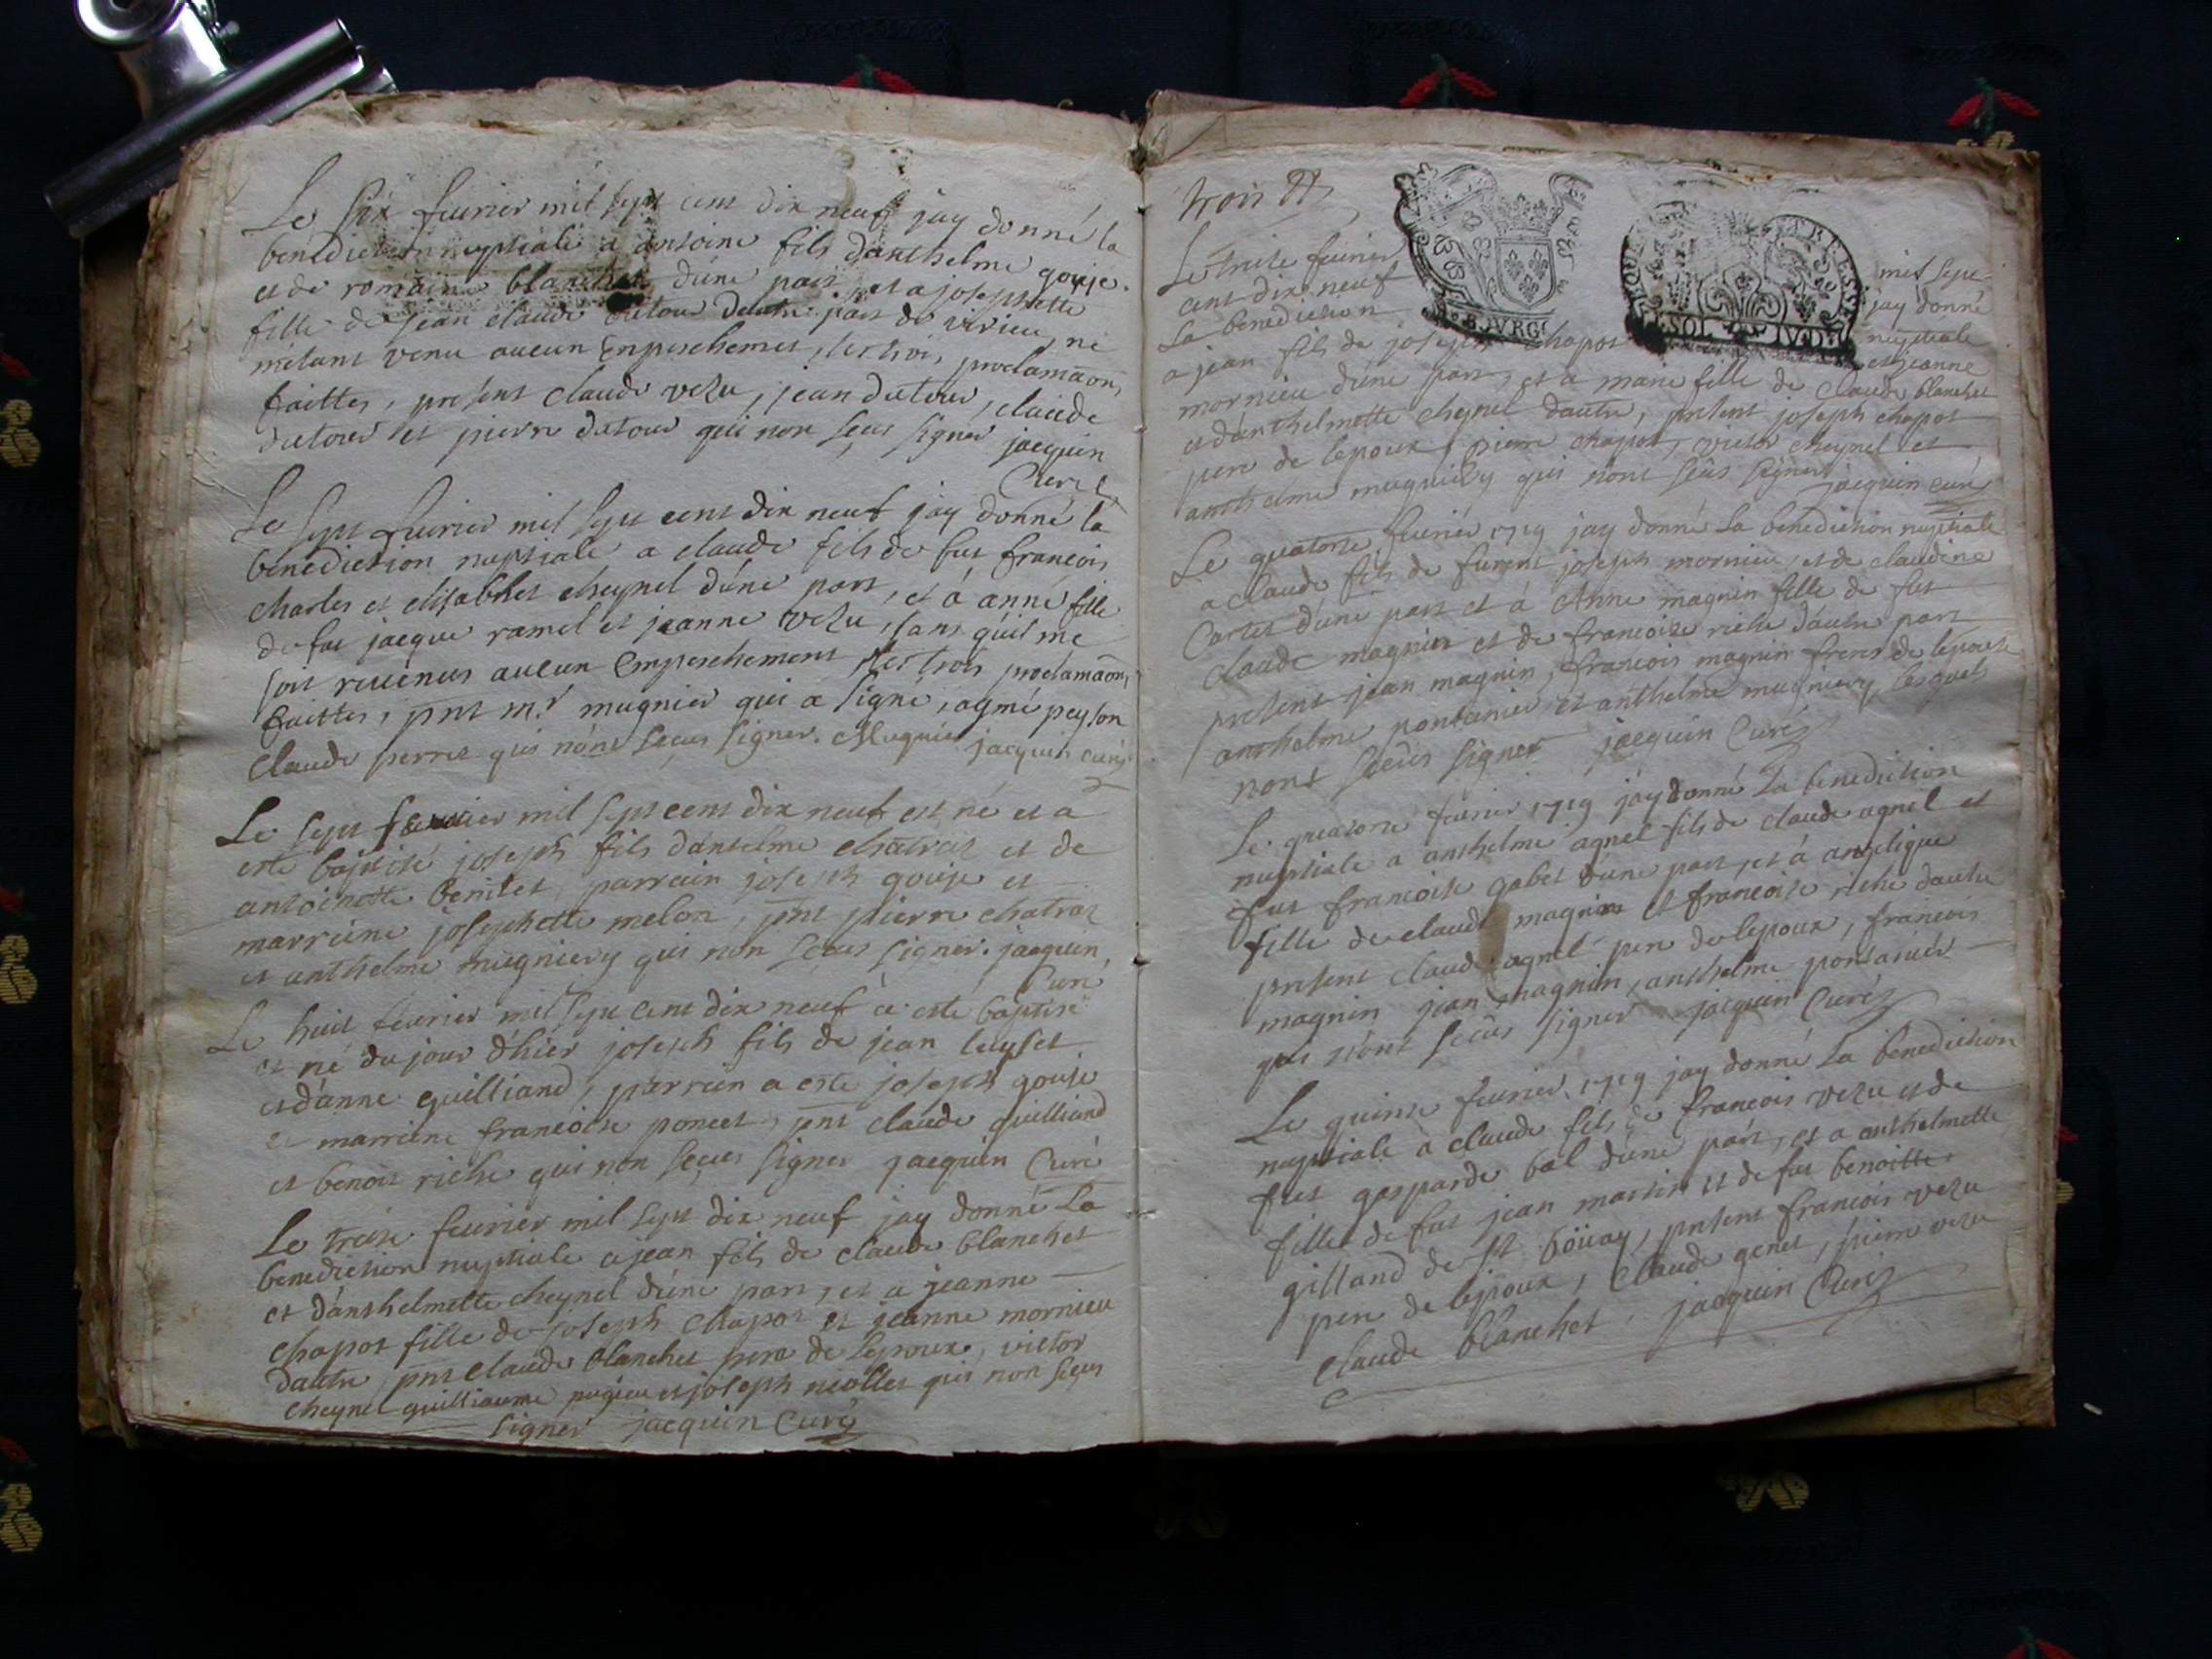 Le six feurier mil sept cent dix neuf jay donné la
benediction nuptiale a antoine fils danthelme gouje
et de romaine blanchet dúne part et a josephette
fille de jean claude dutour dautre part de virieu, ne
métant venu aucun empeschemet, les trois proclamaõn,
faittes, present claude vezu, jean dutour, claude
dutour et pierre dutour qui non sçeus signer jacquin
Curé
Le sept feurier mil sept cent dix neuf jay donné la
benediction nuptiale a claude fils de fut françois
charles et elisabhet cheynel dúne part, et á anné fille
de fut jacque ramel et jeanne vezu, sans quil me
soit reuenus aucun empeschement les trois proclamaõn,
faittes, pn̄t m.r mugnier qui a signé, aymé peyson
claude perret qui nónt sçeus signer. Mugnier jacquin curé
Le sept feurier mil sept cent dix neuf est né et a
esté baptisé joseph fils dantelme chatraz et de
antoinette benitet, parrein joseph gouje et
marreine josephette melon, pn̄t pierre chatraz
et anthelme mugniery qui non sçeus signer. jacquin
Curé
Le huit feurier mil sept cent dix neuf à esté baptisé
et né du jour d'hier joseph fils de jean leyset
et dánne guilliand, parrein a esté joseph gouje
et marreine francoise poncet, pnt claude guilliand
et benoit riche qui non sçeus signer jacquin Curé
Le treise feurier mil sept dix neuf jay donné La
benediction nuptiale a jean fils de claude blanchet
et dánthelmette cheynel dúne part, et a jeanne
chapot fille de joseph chapot et jeanne mornieu
dautre, pnt claude blanchet pere de lepoux, victor
cheynel guilliaume pugieu et joseph mollet qui non sçeus
signer jacquin Curé
trois
BVRG
SOL
Le treise feurier mil sept
cent dix neuf jay donné
La benediction nuptiale
a jean fils de joseph chapot et jeanne
mornieu dúne part, et a marie fille de claude blanchet
et dánthelmette cheynel dautre, present joseph chapot
pere de lepoux, pierre chapot, victor cheynel et
anthelme mugniery qui nont sçeûs signer jacquin curé
Le quatorse feurier 1719 jay donné La benediction nuptiale
a claude fils de furent joseph mornieu et de claudine
Cartet dúne part et à Anne magnin fille de fut
claude magnin et de francoise riche dáutre part
present jean magnin, francois magnin freres de lepouse
anthelme pontanier et anthelme mugniery, lesquels
nont sçeûs signer jacquin Curé
Le quatorse feurier 1719 jáy donné La benediction
nuptiale a anthelme agnel fils de claude agnel et
fut francoise gobet dúne part, et á angelique
fille de claude magnin et francoise riche dautre
present claude agnel pere de lepoux, francois
magnin jean magnin, anthelme pontanier
qui nónt sçeûs signer jacquin Curé
Le quinse feurier, 1719 jay donné La benediction
nuptiale à claude fils de francois vezu et de
fut gasparde bal dúne part, et a anthelmette
fille de fut jean martin et de fut benoitte
gilland de st boüay, present francois vezu
pere de lepoux, claude genet, pierre vezu
claude blanchet, jacquin Curé